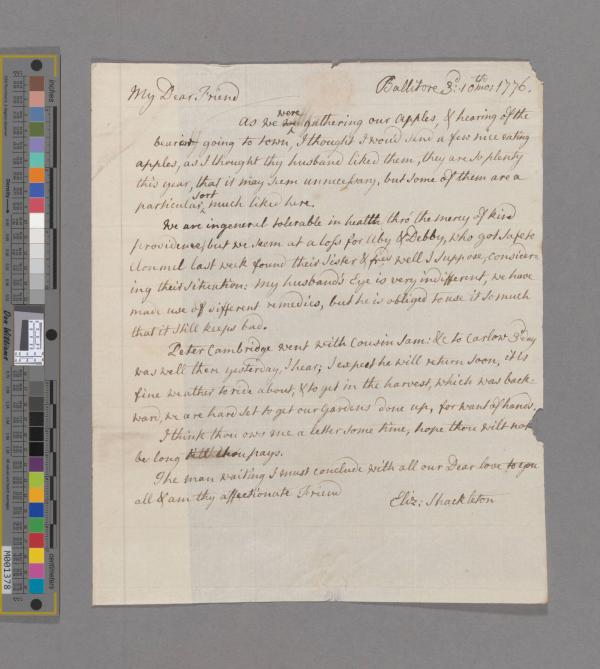 Ballitore 3d: 10th mos 1776.
My Dear Friend
were
As we are gathering our apples, & hearing of the
bearer going to town, I thought I woud send a few nice eating
apples, as I thought thy husband liked them, they are so plenty
this year, that it may seem unnecessary, but some of them are a
sort
particular, much liked here.
We are ingeneral tolerable in health thro' the mercy of kind
providence, but we seem at a loss for Aby & Debby, who got safe to
Clonmel last week found their Sister & well I suppose, consider-
ing their Situation: my husband's Eye is very indifferent, we have
made use of different remedies, but he is obliged to use it so much
that it still keeps bad.
Peter Cambridge went with Cousin Sam: &c to Carlow 3d day
was well there yesterday, I hear; I expect he will return soon, it is
fine weather to ride about, & to get in the harvest, which was back-
ward, we are hard set to get our Gardens done up, for want of hands.
I think thou ows me a letter some time, hope thou wilt not
be long till thou pays.
The man waiting I must conclude with all our Dear love to you
all & am thy affectionate Friend
Eliz: Shackleton
Don Williams
M001378
inches
centimeters
Density